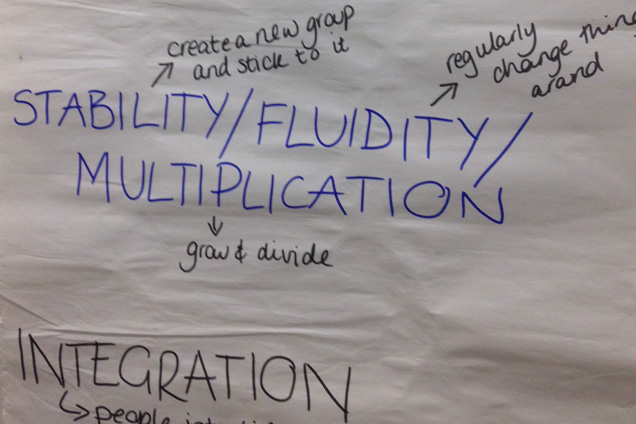 create a new group
and stick to it
regularly
change thing
arand
STABILITY/FLUIDITY/
MULTIPLICATION
grow & divide
INTEGRATION
people